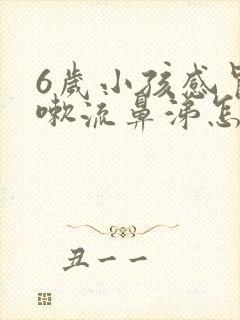 6歲小孩感
嗽流鼻涕怎
丑一一